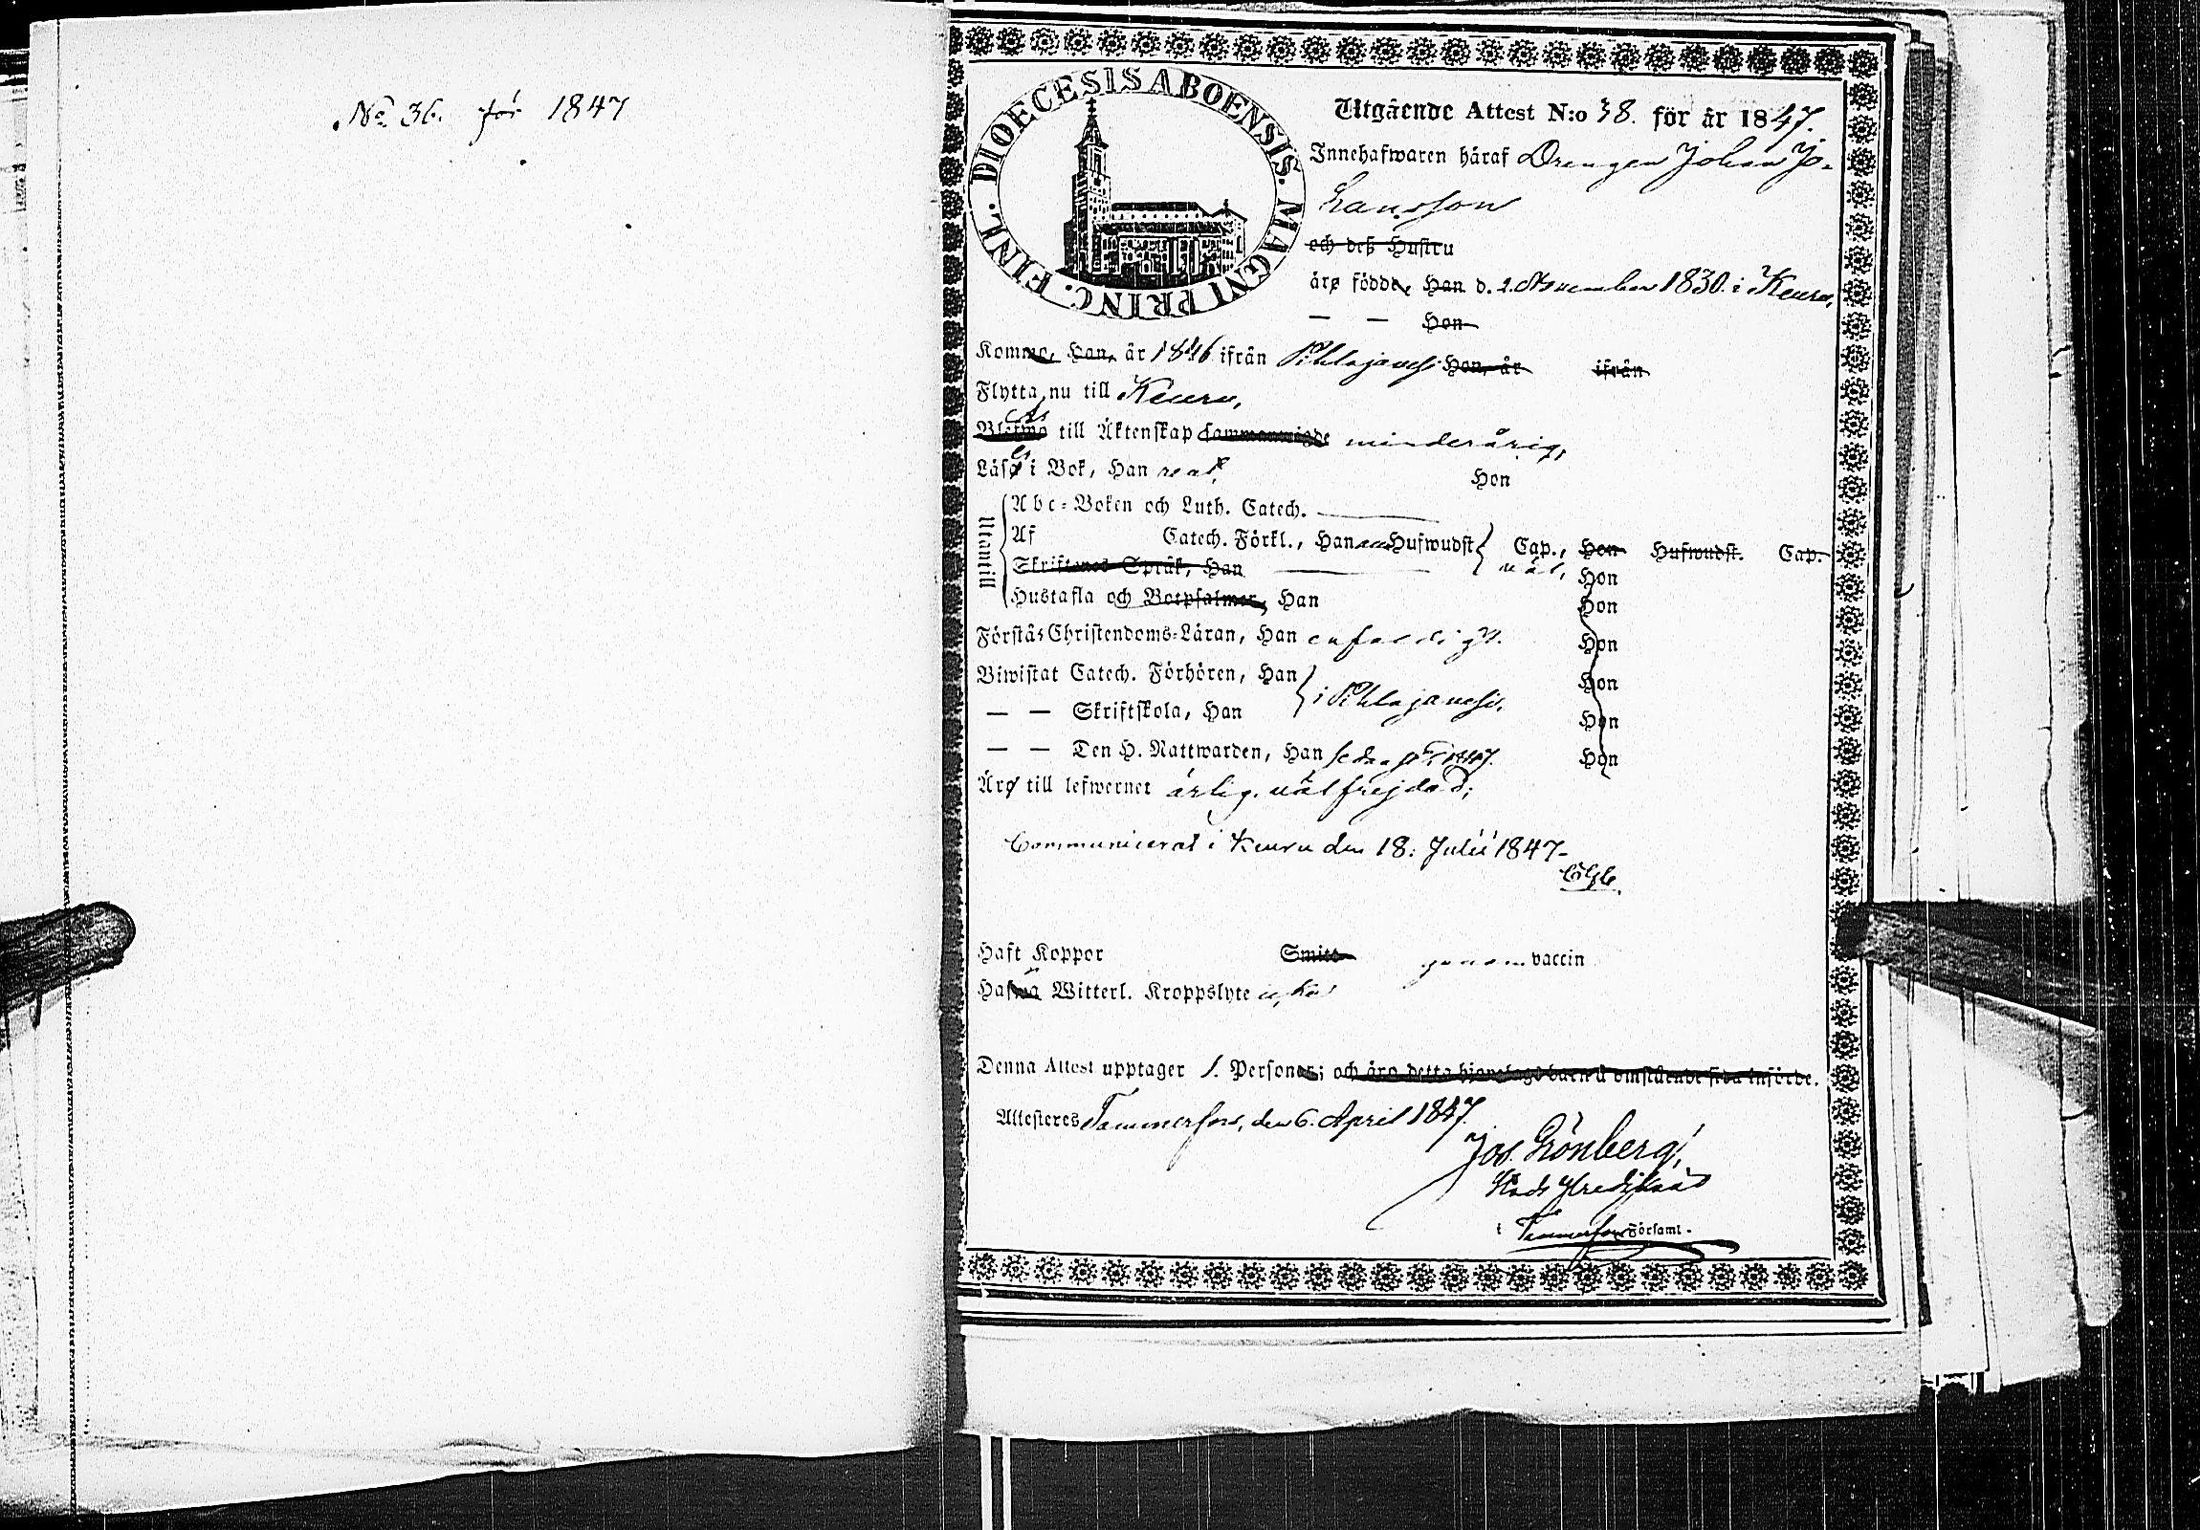 No 36. för 1847
DIOECESIS ABOENSIS. MAGNI PRINC. FINL.
Utgående Attest N:o 38. för år 1847.
Innehafwaren häraf Drengen Johan Jo-
hansson
och deß Hustru
äro födde, Han d. 2 November 1830. i Keuru,
— — Hon
Komme, Han, år 1846 ifrån Pihlajavesi Hon, år ifrån
Flytta nu till Keuru,
till Äktenskap sammanwigde minderårig,
Läser i Bok, Han Hon
Utantill
Abc-Boken och Luth. Catech.
Af Catech. Förkl., Han Hufwudst Cap., Hon Hufwudst. Cap.
Skriftenes Språk, Han väl, Hon
Hustafla och Botpsalmer, Han Hon
Förstår Christendoms-Läran, Han enfaldigt. Hon
Biwistat Catech. Förhören, Han i Pihlajavesi. Hon
— — Skriftskola, Han Hon
— — Den H. Nattwarden, Han 1847. Hon
Äro till lefwernet ärlig, väl frejdad;
Communicerat i Keuru den 18: Julii 1847-
Haft Koppor Smitt genom vaccin
Hafwa Witterl. Kroppslyte
Denna Attest upptager 1. Personer; och äro detta hjonelags barn å omstående sida införde.
Attesteres Tammerfors, den 6. April 1847.
Jos. Grönberg,
i Tammerfors Församl.